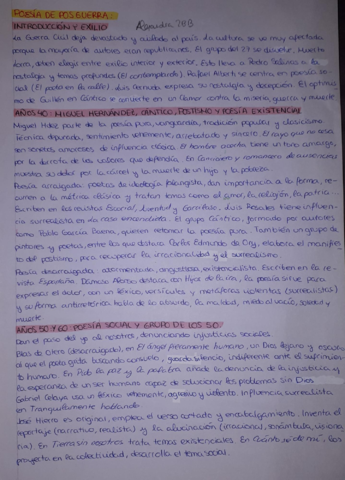 POESÍA DE POSGUERRA.
INTRODUCCIÓN Y EXILIO
La Guerra Civil deja devastado y aislado al país. La cultura se ve muy afectada
porque la mayoría de autores eran republicanos. El grupo del 27 se disuelve. Muerto
Lorca, deben elegir entre exilio interior y exterior. Esto lleva a Pedro Salinas a la
nostalgia y temas profundos (El contemplado). Rafael Alberti se centra en poesía so
cial (El poeta en la calle). Luis Cernuda expresa su nostalgia y decepción. El optimis
mo de Guillén en Cántico se convierte en un Clamor contra la miseria, guerra y muerte.
AÑOS 40: MIGUEL HERNÁNDEZ, CÁNTICO, POSTISMO Y POESÍA EXISTENCIAL
Miguel Hdez parte de la poesía pura, vanguardia, tradición popular y clasicismo.
Técnica depurada, sentimiento vehemente, arrebatado y sincero. El rayo que no cesa
son sonetos amorosos de influencia clásica. El hombre acecha tiene un tono amargo,
por la derrota de los valores que defendía. En Cancionero y romancero de ausencias
muestra su dolor por la cárcel y la muerte de un hijo y la pobreza.
Poesía arraigada: poetas de ideología falangista, dan importancia a la forma, re-
curren a la métrica clásica y tratan temas como el amor, la religión, la patria...
Escriben en las revistas Escorial, Garcilaso, Luis Rosales tiene influen-
cia surrealista en La casa encendida. El grupo Cántico, formado por autores
como Pablo García Baena, quieren retomar la poesía pura. También un grupo de
pintores y poetas, entre los que destaca Carlos Edmundo de Ory, elabora el manifies
to del postismo, para recuperar la irracionalidad y el surrealismo.
Poesía desarraigada: atormentada, angustiosa, existencialista. Escriben en la re-
vista Espadaña. Dámaso Alonso destaca con Hijos de la ira, la poesía sirve para
expresar el dolor, con un léxico, versículos y metáforas violentas (surrealistas)
y su forma antirretórica habla de lo absurdo, la maldad, miedo al vacío, soledad y
muerte
AÑOS 50 Y 60: POESÍA SOCIAL Y GRUPO DE LOS 50.
Dan el paso del yo al nosotros, denunciando injusticias sociales.
Blas de Otero (desarraigado), en El Ángel fieramente humano, un Dios lejano y
al que el poeta grita buscando consuelo, guarda silencio, indiferente ante el sufrimien-
to humano. En Pido la paz y la palabra añade la denuncia de la injusticia y
la esperanza de un ser humano capaz de solucionar los problemas sin Dios.
Gabriel Celaya usa un léxico vehemente, agresivo y violento. Influencia surrealista
en Tranquilamente hablando.
José Hierro es original, emplea el verso cortado y encabalgamiento. Inventa el
reportaje (narrativo, realista) y la alucinación (irracional, sonámbula, visiona
ria). En Tierra sin nosotros trata temas existenciales. En Cuanto sé de mí, los
proyecta en la colectividad, desarrolla el tema social.